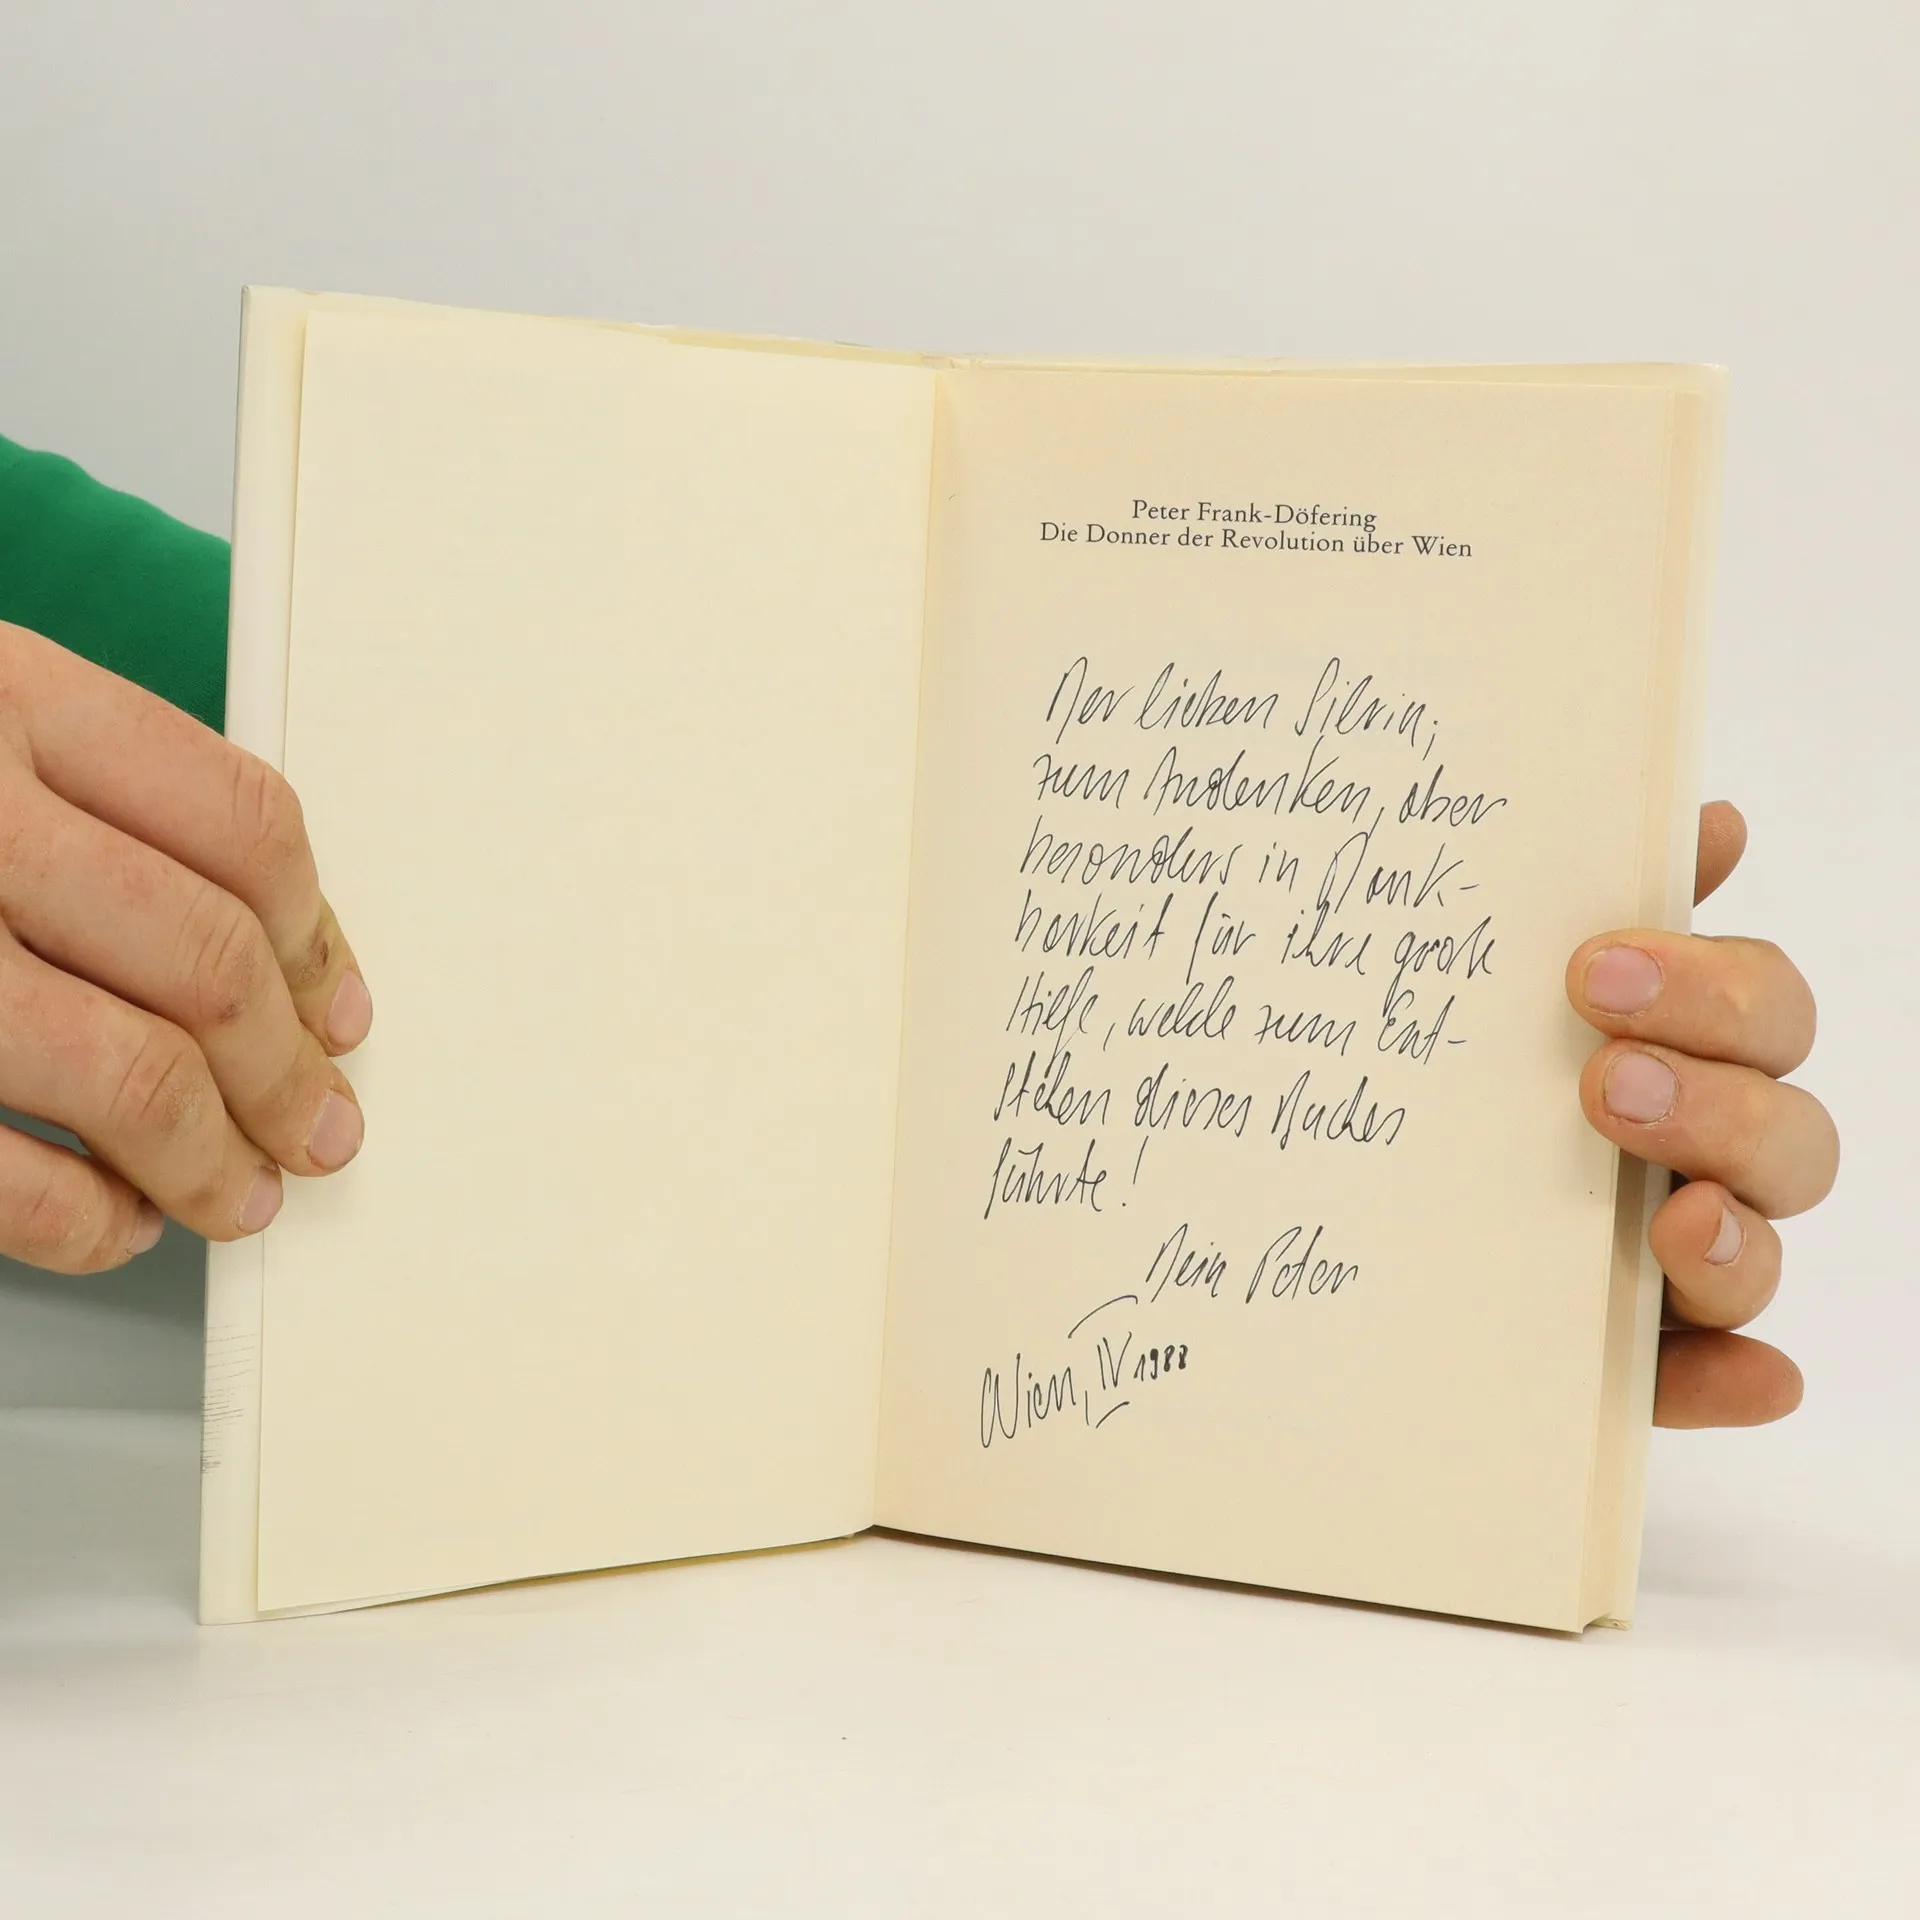 Peter Frank-Döfering
Die Donner der Revolution über Wien
Der lieben Silvia,
zum Andenken, aber
besonders in Dank-
barkeit für ihre große
Hilfe, welche zum Ent-
stehen dieses Buches
führte!
Dein Peter
Wien, IV 1988